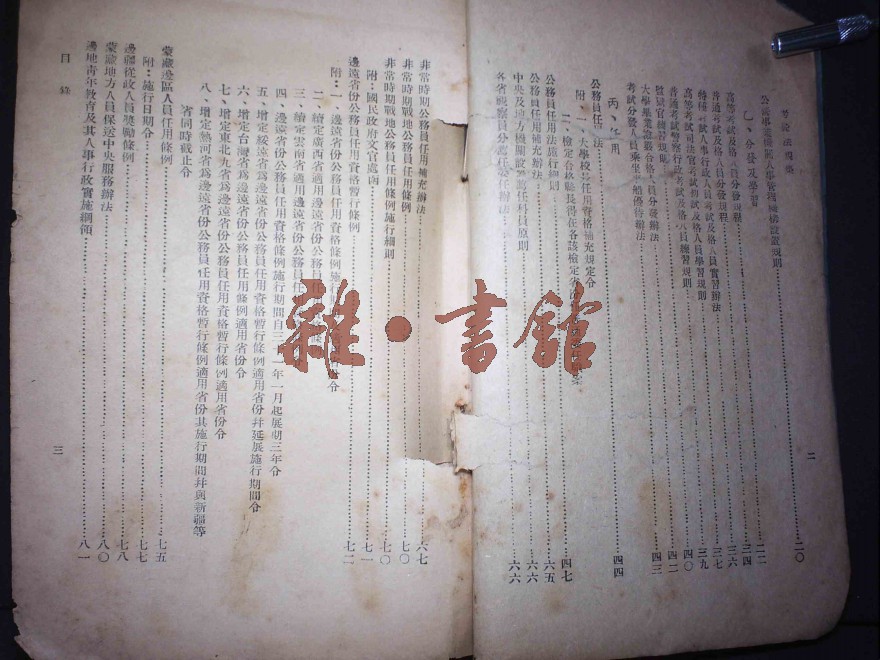 二
公營事業機關人事管理機構設置規則……二〇
乙、分發及學習……二二
高等考試及格人員分發規程……三四
普通考試及格人員分發規程……三六
特種考試人事行政人員考試及格人員實習辦法……三七
高等考試司法官考試及格人員學習規則……三九
普通考試警察行政考試及格人員練習規則……四〇
監獄官練習規則……四二
大學畢業證嚴合格人員分發辦法……四三
考試分發人員乘坐車船優待辦法
丙、任用……四四
公務員任 法
附:一、大學校長任用資格補充規定令
二、檢定合格縣長得任各該檢定省……四七
公務員任用法施行細則……六五
公務員任用補充辦法……六六
中央及地方機關設置薦任科員原則……六六
各省視察員分薦任委任辦法
非常時期公務員任用補充辦法……六七
非常時期戰地公務員任用條例……七〇
非常時期戰地公務員任用條例施行細則……七〇
附:國民政府文官處函……七一
邊遠省份公務員任用資格暫行條例……七二
附:一、邊遠省份公務員任用資格條例施 令
二、續定廣西省適用邊遠省份公務員任
三、續定雲南省適用邊遠省份公務員任
四、邊遠省份公務員任用資格條例施行期間自三十一年一月起展期三年令
五、增定綏遠省爲邊遠省份公務員任用資格暫行條例適用省份幷延展施行期間令
六、增定台灣省爲邊遠省份公務員任用資格暫行條例適用省份令
七、增定東北九省爲邊遠省份公務員任用資格暫行條例適用省份令
八、增定熱河省爲邊遠省份公務員任用資格暫行條例適用省份其施行期間幷與新疆等
省同時截止令
蒙藏邊區人員任用條例……七五
附:施行日期令……七七
邊疆從政人員奬勵條例……七八
蒙藏地方人員保送中央服務辦法……八〇
邊地靑年敎育及其人事行政實施綱領……八一
目錄
三
雜·書館